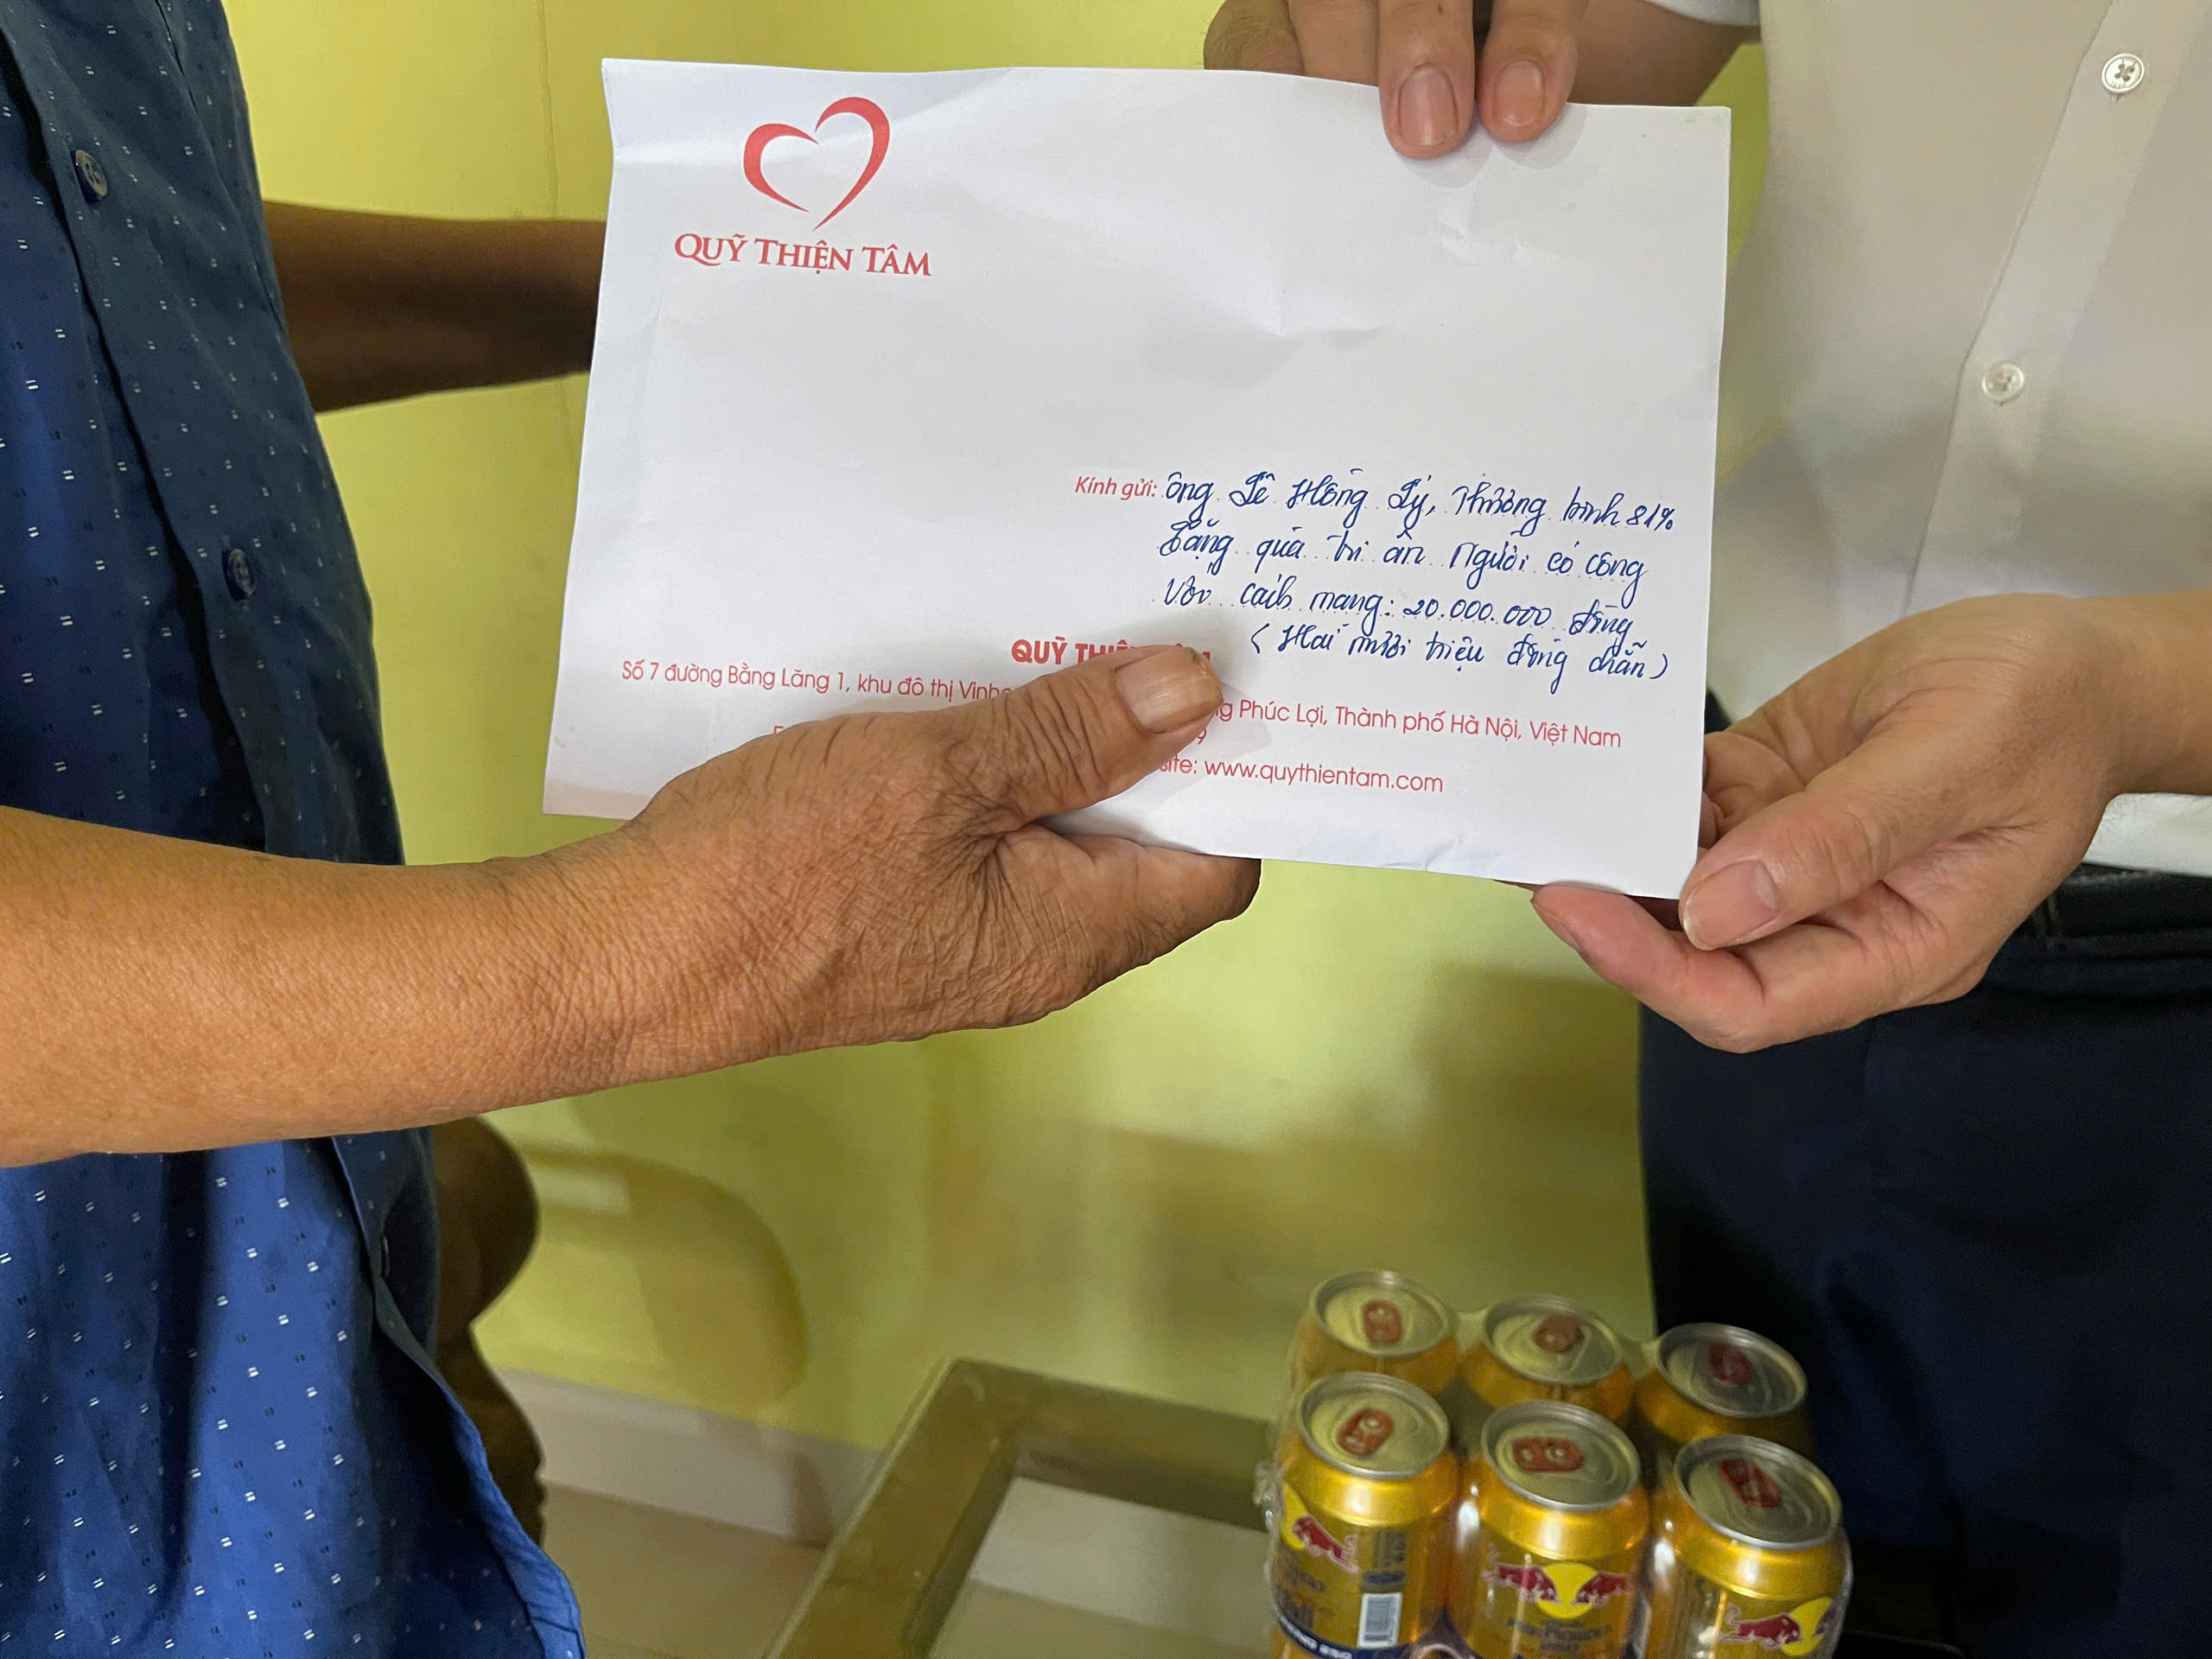 QUỸ THIỆN TÂM
Kính gửi: Ông Lê Hồng Lý, Thương binh 81%
Tặng quà tri ân Người có công
với cách mạng: 20.000.000 đồng
(Hai mươi triệu đồng chẵn)
QUỸ
Số 7 đường Bằng Lăng 1, khu đô thị Phúc Lợi, Thành phố Hà Nội, Việt Nam
www.quythientam.com